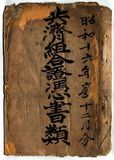 昭和十六年十二月分
共濟組合證憑書類